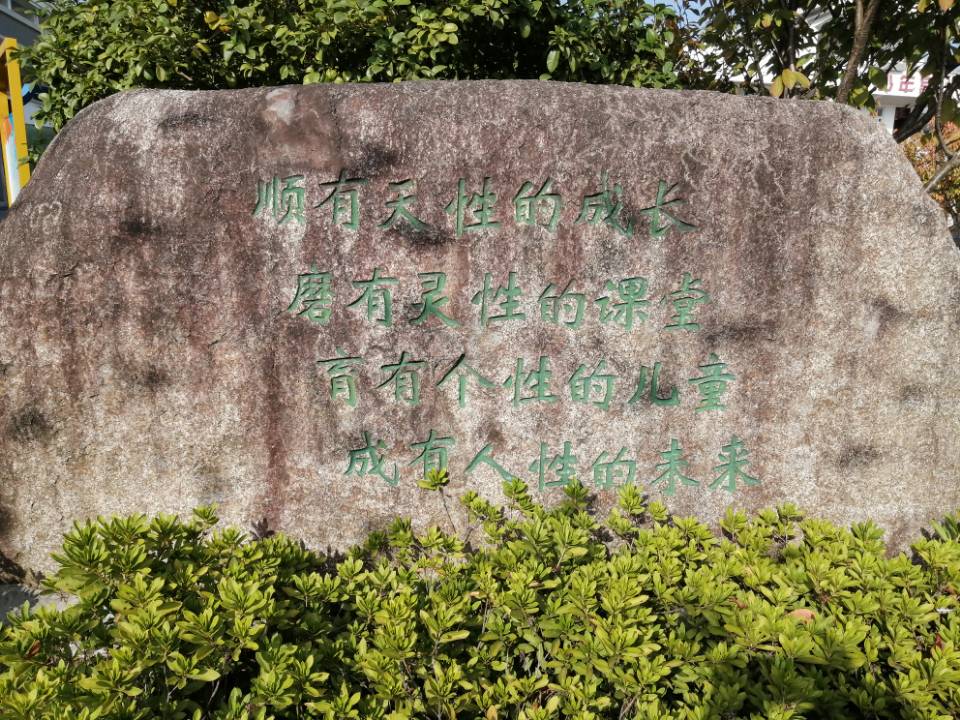 顺有天性的成长
磨有灵性的课堂
育有个性的儿童
成有人性的未来